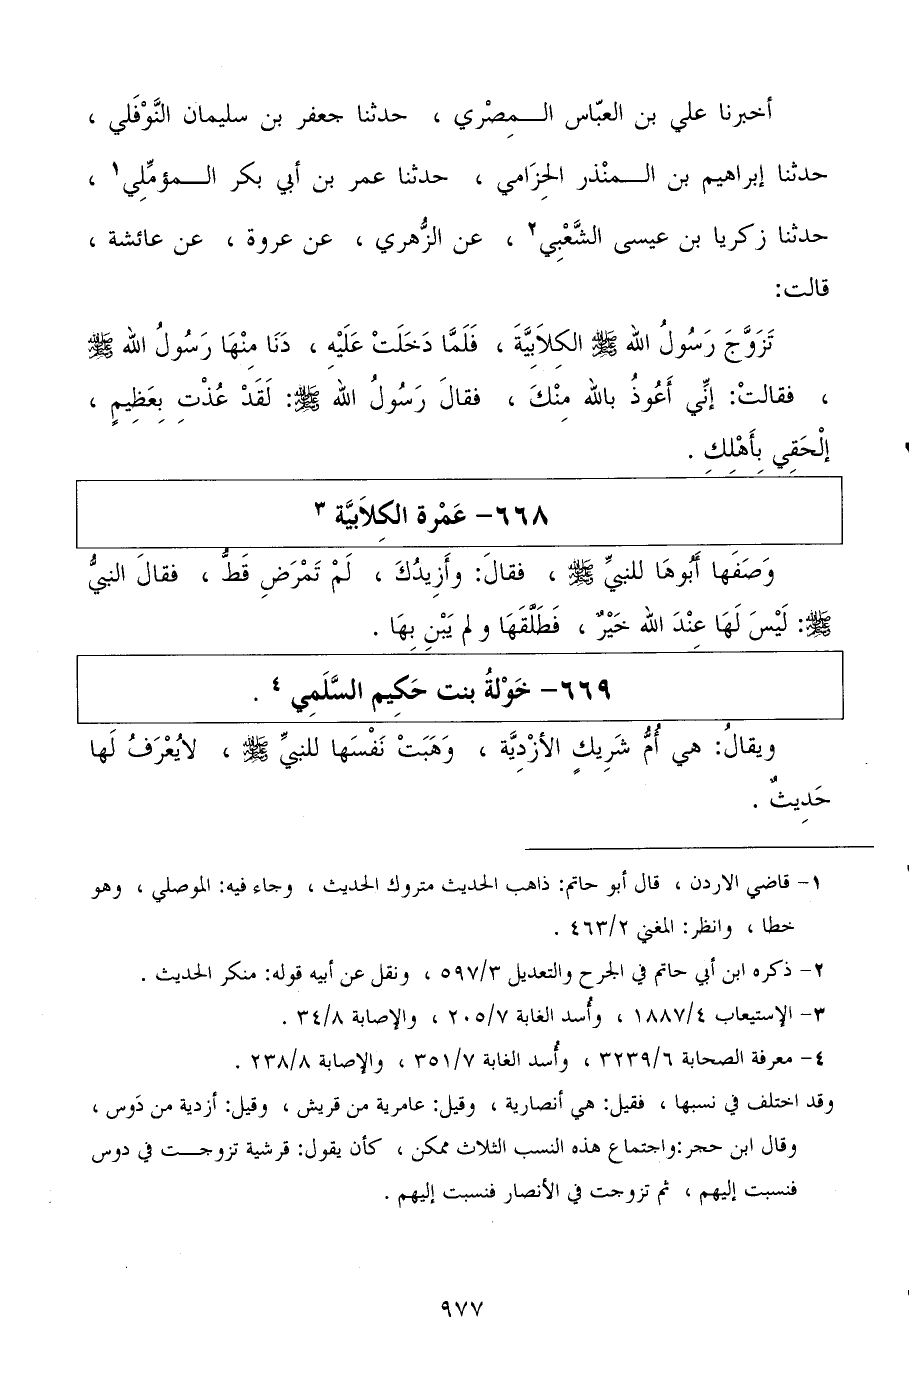 أخبرنا علي بن العبّاس الـــمِصْري ، حدثنا جعفر بن سليمان النَّوْفَلي ،
حدثنا إبراهيم بن الـــمنْذر الحِزَامي ، حدثنا عمر بن أبي بكر الـــمؤمِّلي١ ،
حدثنا زكريا بن عيسى الشَّعْبِي٢ ، عن الزُّهري ، عن عروة ، عن عائشة ،
قالت:
تَزَوَّجَ رَسُولُ الله ﷺ الكِلاَبِيَّةَ ، فَلَمَّا دَخَلَتْ عَلَيْهِ ، دَنَا مِنْهَا رَسُولُ الله ﷺ
، فقالتْ: إنِّي أَعُوذُ بالله مِنْكَ ، فقالَ رَسُولُ الله ﷺ: لَقَدْ عُذْتِ بِعَظِيمٍ ،
إلْحَقِي بِأَهْلِكِ .
٦٦٨- عَمْرة الكِلاَبيَّة ٣
وَصَفَها أَبُوهَا للنبيِّ ﷺ ، فقالَ: وأَزِيدُكَ ، لَمْ تَمْرَضِ قَطُّ ، فقالَ النبيُّ
ﷺ: لَيْسَ لَهَا عِنْدَ الله خَيْرٌ ، فَطَلَّقَهَا و لم يَبْنِ بِهَا .
٦٦٩- خَوْلةُ بنت حَكيمِ السَّلَمِي ٤ .
ويقالُ: هي أُمُّ شَرِيكٍ الأزْدِيَّة ، وَهَبَتْ نَفْسَها للنبيِّ ﷺ ، لايُعْرَفُ لَها
حَدِيثٌ .
١- قاضي الاردن ، قال أبو حاتم: ذاهب الحديث متروك الحديث ، وجاء فيه: الموصلي ، وهو
خطا ، وانظر: المغني ٤٦٣/٢ .
٢- ذكره ابن أبي حاتم في الجرح والتعديل ٥٩٧/٣ ، ونقل عن أبيه قوله: منكر الحديث .
٣- الإستيعاب ١٨٨٧/٤ ، وأُسد الغابة ٢٠٥/٧ ، والإصابة ٣٤/٨ .
٤- معرفة الصحابة ٣٢٣٩/٦ ، وأُسد الغابة ٣٥١/٧ ، والإصابة ٢٣٨/٨ .
وقد اختلف في نسبها ، فقيل: هي أنصارية ، وقيل: عامرية من قريش ، وقيل: أزدية من دَوس ،
وقال ابن حجر:واجتماع هذه النسب الثلاث ممكن ، كأن يقول: قرشية تزوجـــت في دوس
فنسبت إليهم ، ثم تزوجت في الأنصار فنسبت إليهم .
٩٧٧